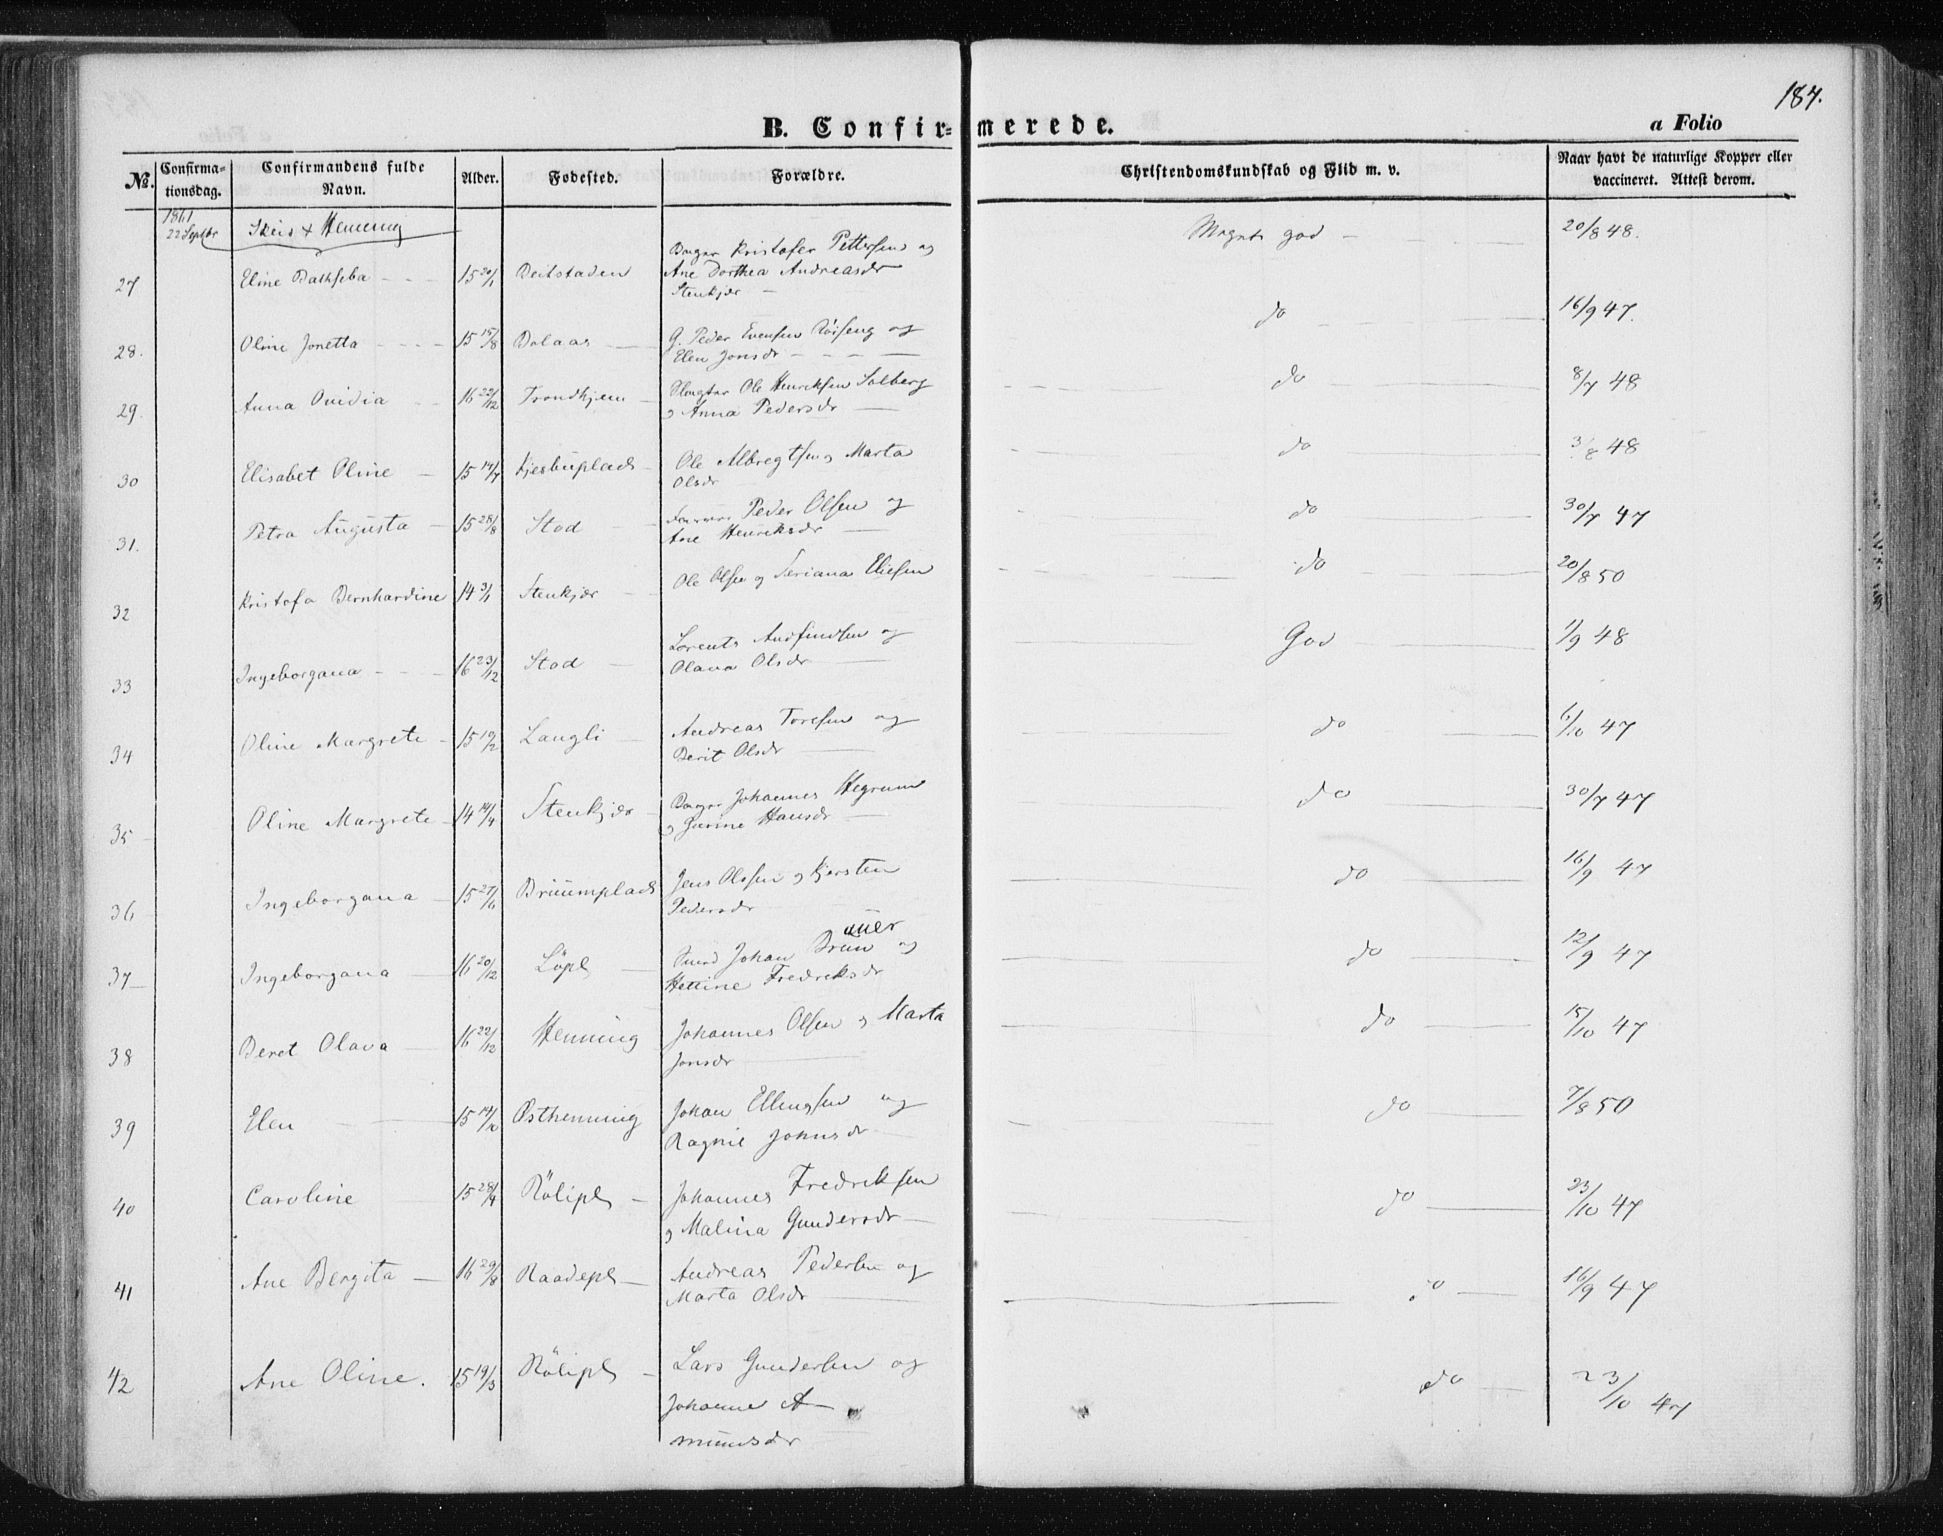 187.
B. Confirmerede.
a Folio
No. Confirmationsdag. Confirmandens fulde Navn. Alder. Fødested. Forældre. Christendomskundskab og Flid m. v. Naar havt de naturlige Kopper eller vaccineret. Attest derom.
1861
22 Septbr
Skeis + Henning
27 Eline Bathseba 15 20/1 Beitstaden Borger Kristofer Pettersen og Ane Dorthea Andreasdr Stenkjær Meget god 20/8 48.
28. Oline Jonetta 15 15/8 Bolaas G. Peder Evensen og Elen Jonsdr do 16/9 47.
29. Anna Ovidia 16 22/12 Trondhjem Ole Henriksen Solberg og Anna Pedersdr do 8/7 48
30 Elisabet Oline 15 14/7 Kjesbuplads Ole Albregtsen og Marta Olsdr do 3/8 48
31. Petra Augusta 15 28/8 Stod Peder Olsen og Ane Henriksdr do 30/7 47
32 Kristofa Bernhardine 14 3/1 Stenkjær Ole Olsen og Seriana Eliesen do 20/8 50
33 Ingeborgana 16 23/12 Stod Lorents Andfindsen og Olava Olsdr God 1/9 48
34 Oline Margrete 15 19/2 Langli Andreas Toresen og Berit Olsdr do 6/10 47
35 Oline Margrete 14 14/4 Stenkjær Borger Johannes Hegrum og Hansdr do 30/7 47
36 Ingeborgana 15 27/6 Bruumplads Jens Olsen og Kjersten Pedersdr do 16/9 47
37 Ingeborgana 16 20/12 Löpl Smed Johan Brun og Hettine Fredriksdr do 12/9 47
38 Beret Olava 16 22/12 Henning Johannes Olsen og Marta Jonsdr do 15/10 47
39 Elen 15 14/10 Østhenning Johan Ellingsen og Ragnil Johnsdr do 7/8 50
40 Caroline 15 28/4 Rölipl Johannes Fredriksen og Malina Gundersdr do 23/10 47
41 Ane Bergita 16 29/8 Raadepl Andreas Pedersen og Marta Olsdr do 16/9 47
42 Ane Oline. 15 19/3 Rölipl Lars Gundersen og Johanne Amundsdr do 23/10 47